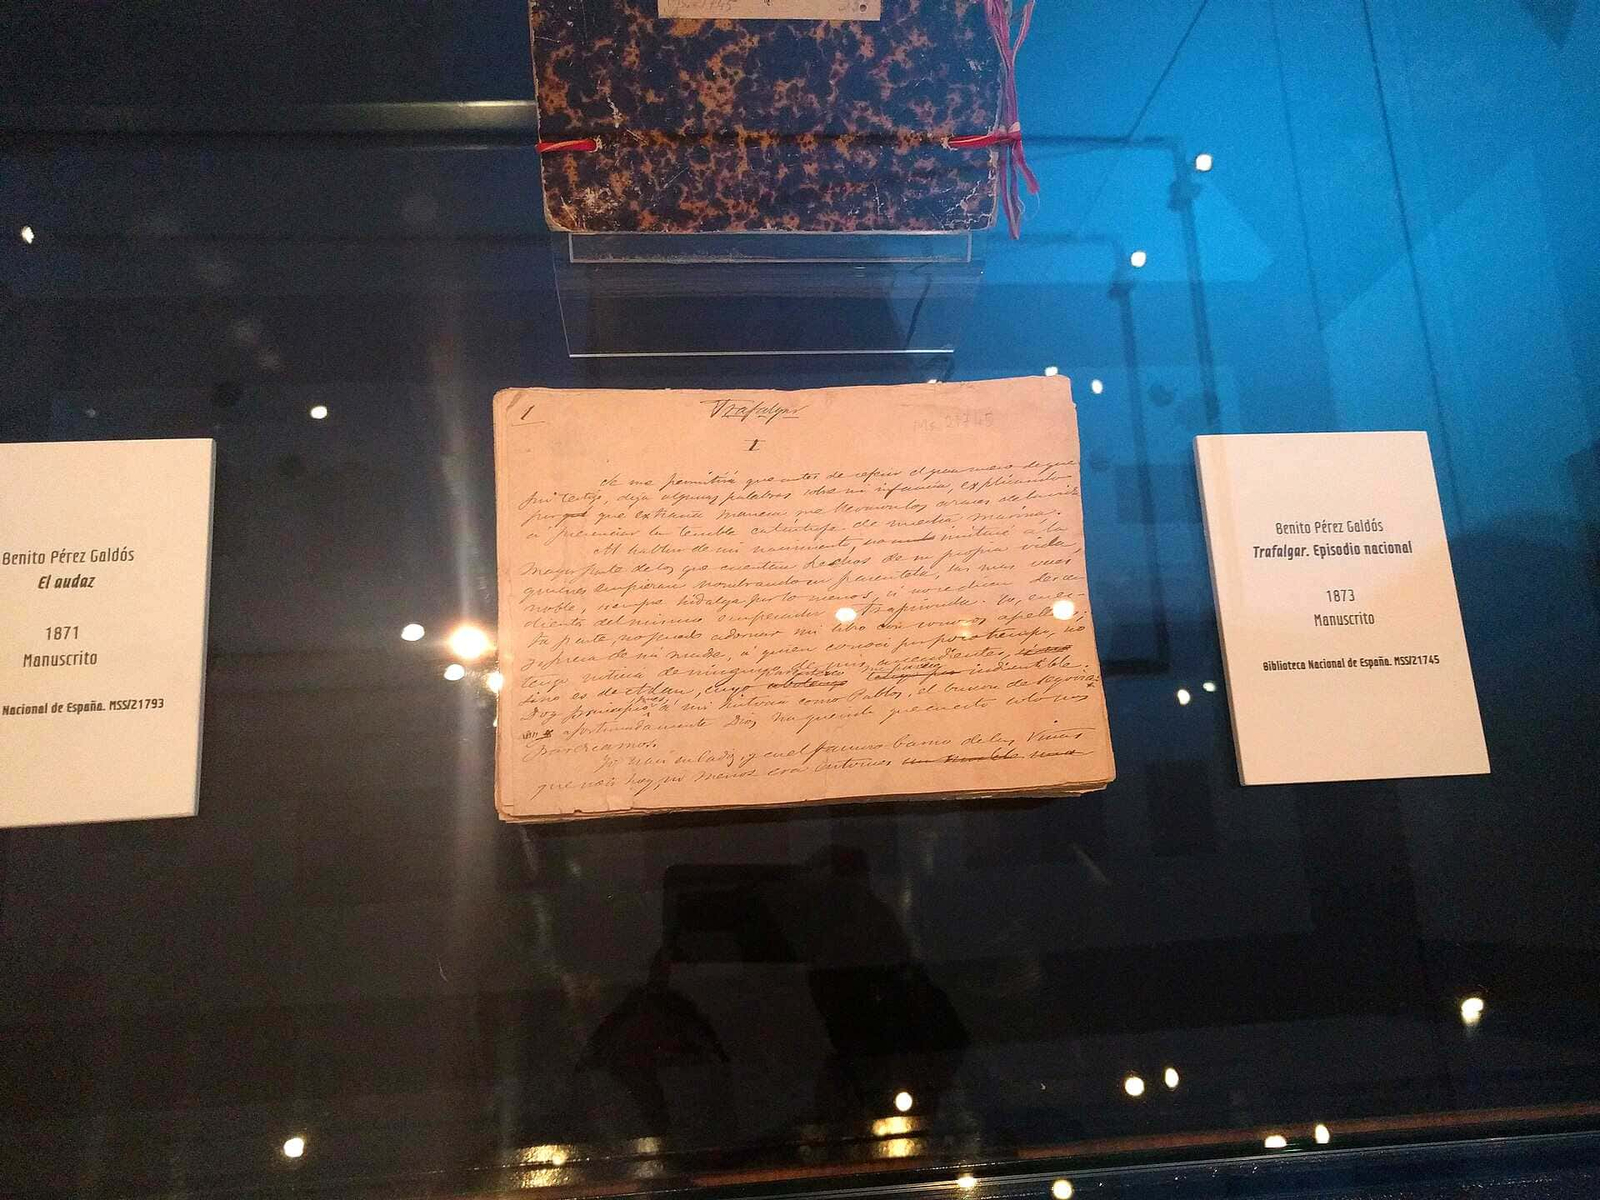 Benito Pérez Galdós
El audaz
1871
Manuscrito
Nacional de España. MSS/21793
1
Trafalgar
Ms. 21745
I
Se me permitirá que antes de referir el gran suceso de que
fui testigo, diga algunas palabras sobre mi infancia, explicando
por que extraña manera me llevaron los azares de la vida
a presenciar la terrible catástrofe de nuestra marina.
Al hablar de mi nacimiento, no imitaré a la
mayor parte de los que cuentan hechos de su propia vida,
quienes empiezan nombrando su parentela, las mas veces
noble, siempre hidalga por lo menos, si no se dicen descen-
dientes del mismo emperador Trapisonda. Yo, en es-
ta parte, no puedo adornar mi libro con sonoros apellidos;
y fuera de mi madre, a quien conocí por poco tiempo, no
tengo noticia de ninguno de mis ascendientes,
sino es de Adan, cuyo parentesco me parece indiscutible.
Doy principio pues, a mi historia como Pablos, el buscon de Segovia:
afortunadamente Dios ha querido que en esto solo nos
parezcamos.
Yo nací en Cadiz, y en el famoso barrio de la Viña
que no es hoy, ni menos era entonces
Benito Pérez Galdós
Trafalgar. Episodio nacional
1873
Manuscrito
Biblioteca Nacional de España. MSS/21745